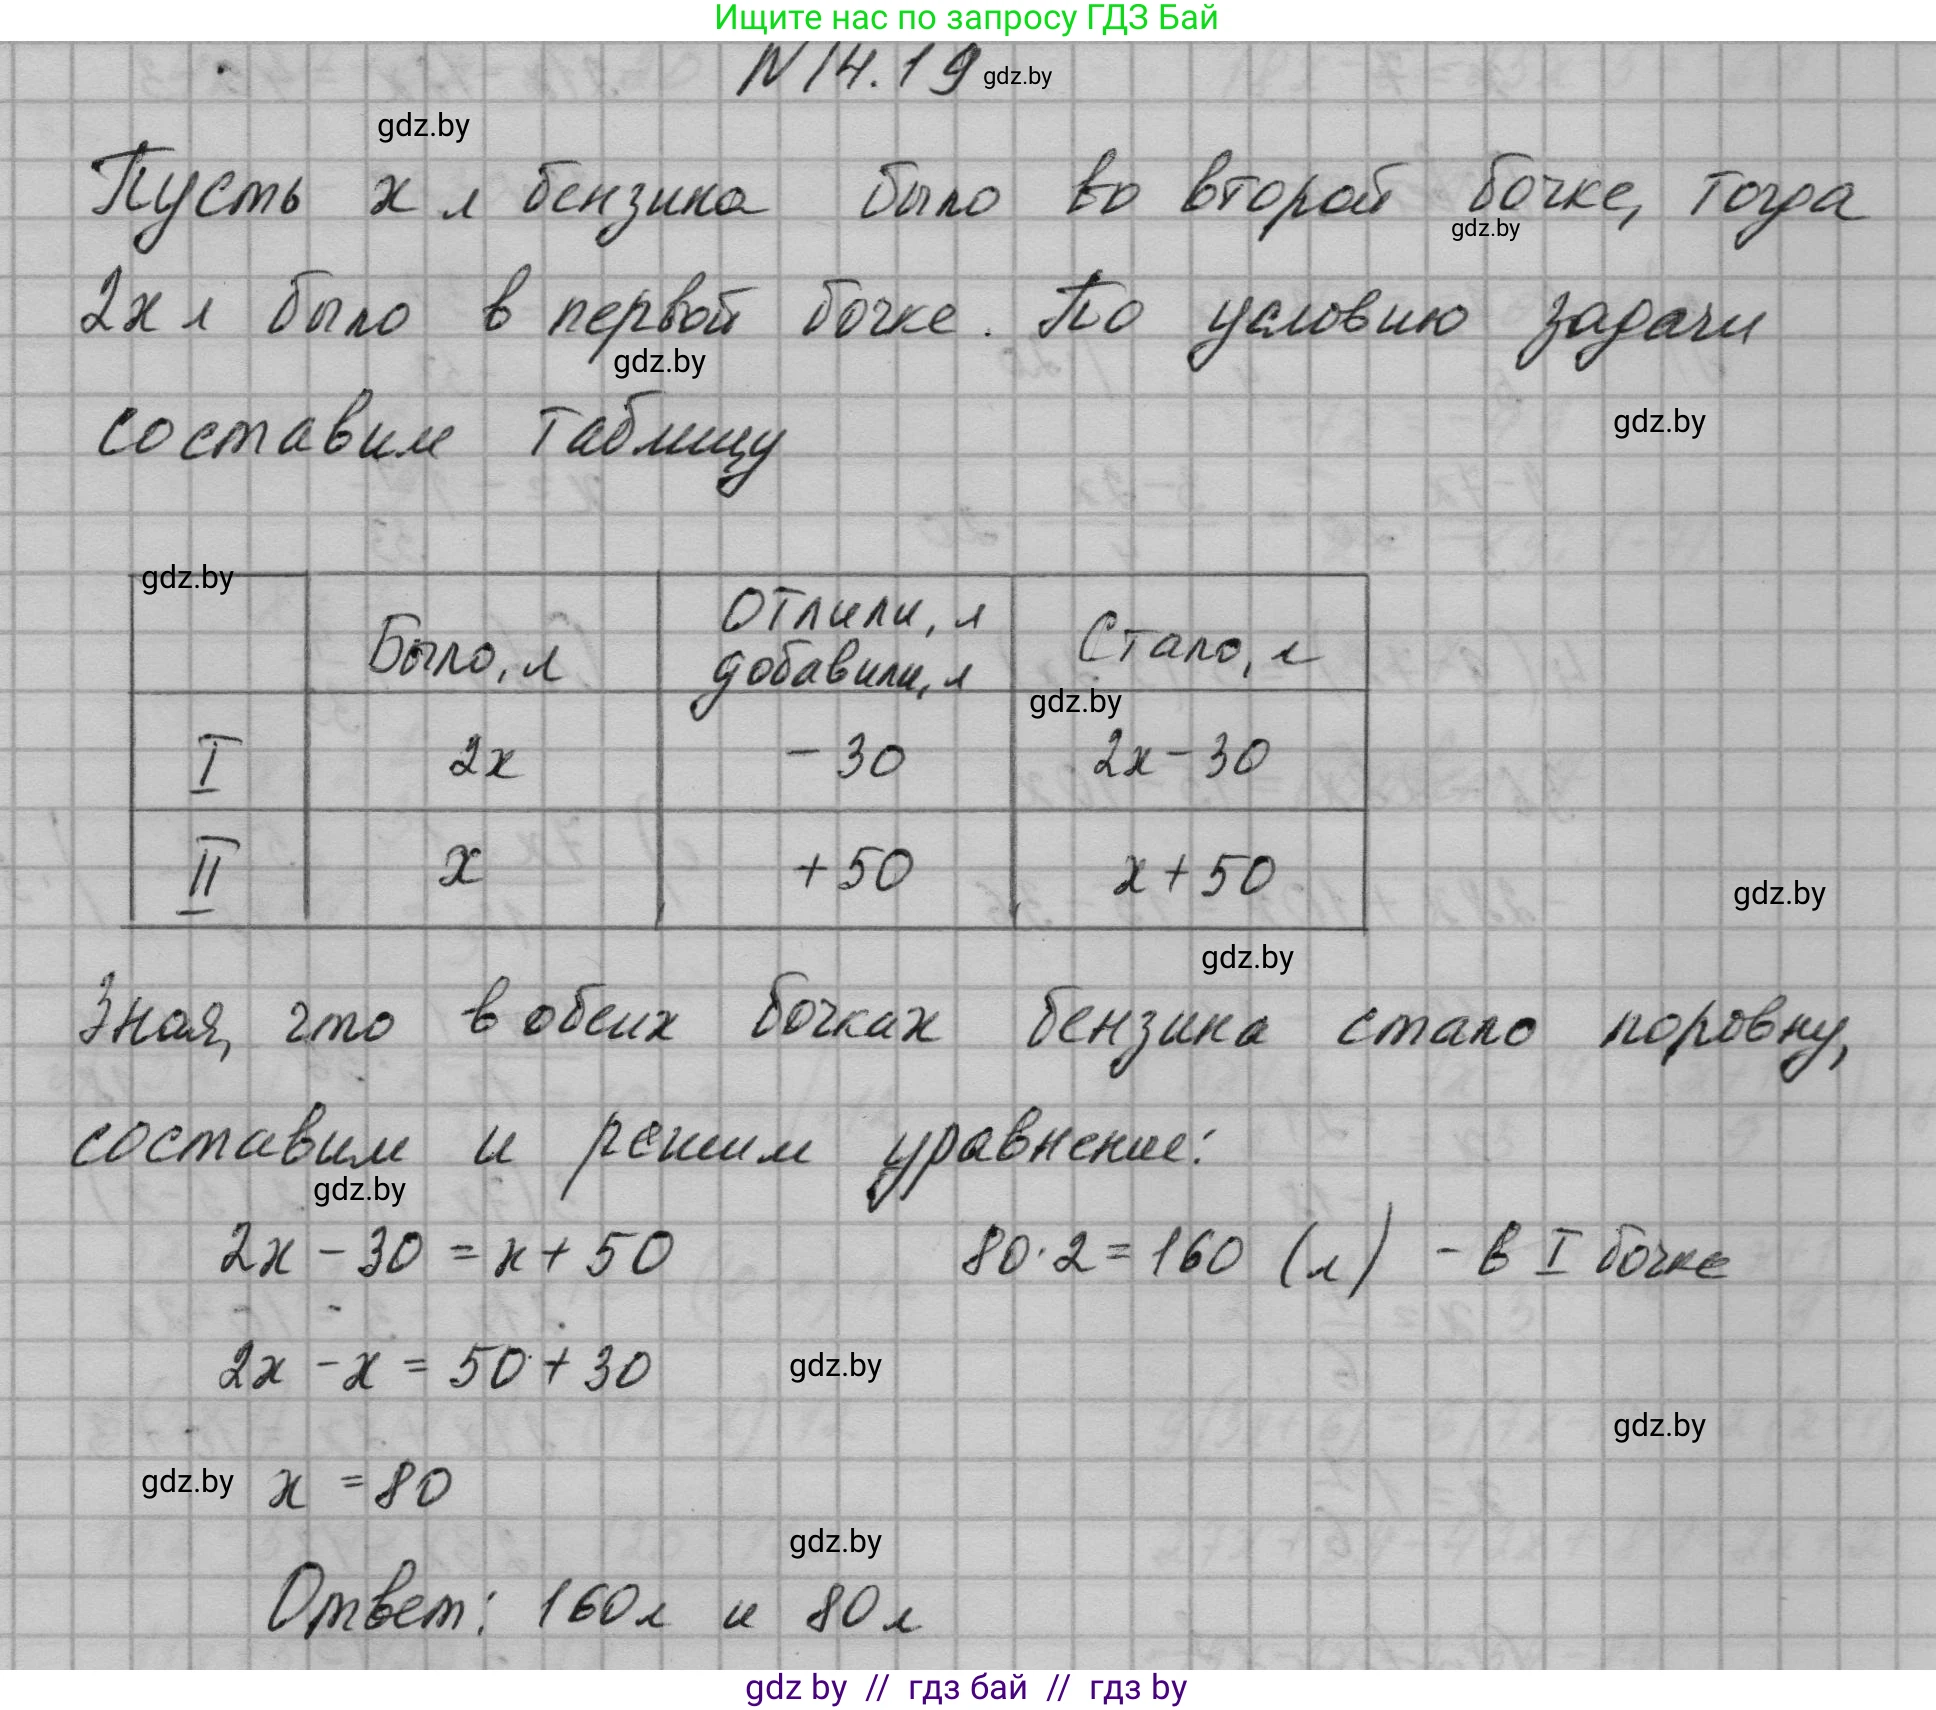 Ищите нас по запросу ГДЗ Бай
N 14.19 gdz.by
gdz.by
Пусть x л бензина было во второй бочке, тогда
gdz.by
2x л было в первой бочке. По условию задачи
gdz.by
составим таблицу
gdz.by
gdz.by
Было, л Отлили, л добавили, л Стало, л
gdz.by
I 2x − 30 2x − 30
II x + 50 x + 50
gdz.by
gdz.by
Зная, что в обеих бочках бензина стало поровну,
составим и решим уравнение:
gdz.by
2x − 30 = x + 50 80·2 = 160 (л) − в I бочке
2x − x = 50 + 30 gdz.by
gdz.by
gdz.by x = 80
gdz.by
Ответ: 160 л и 80 л
gdz by // гдз бай // гдз by